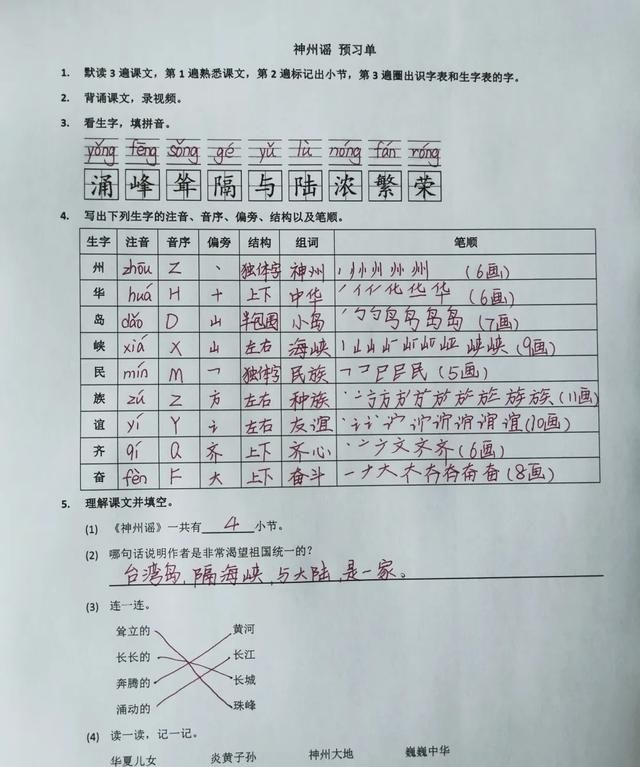 神州谣 预习单
1. 默读 3 遍课文，第 1 遍熟悉课文，第 2 遍标记出小节，第 3 遍圈出识字表和生字表的字。
2. 背诵课文，录视频。
3. 看生字，填拼音。
yǒng fēng sǒng gé yǔ lù nóng fán róng
涌 峰 耸 隔 与 陆 浓 繁 荣
4. 写出下列生字的注音、音序、偏旁、结构以及笔顺。
生字 注音 音序 偏旁 结构 组词 笔顺
州 zhōu Z 丶 独体字 神州 州 州 州 (6画)
华 huá H 十 上下 中华 化 华 (6画)
岛 dǎo D 山 半包围 小岛 岛 岛 (7画)
峡 xiá X 山 左右 海峡 峡 峡 (9画)
民 mín M 乛 独体字 民族 民 (5画)
族 zú Z 方 左右 种族 方 族 族 (11画)
谊 yí Y 讠 左右 友谊 谊 谊 (10画)
齐 qí Q 齐 上下 齐心 文 齐 齐 (6画)
奋 fèn F 大 上下 奋斗 一 ナ 大 奋 奋 (8画)
5. 理解课文并填空。
(1) 《神州谣》一共有 4 小节。
(2) 哪句话说明作者是非常渴望祖国统一的？
台湾岛,隔海峡,与大陆,是一家。
(3) 连一连。
耸立的 黄河
长长的 长江
奔腾的 长城
涌动的 珠峰
(4) 读一读，记一记。
华夏儿女 炎黄子孙 神州大地 巍巍中华